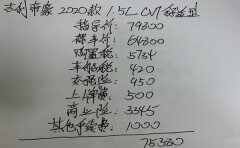 吉利帝豪 2020款 1.5L CVT 豪华型
指导价: 79800
裸车价: 64800
购置税: 5734
车船税: 420
交强险: 950
上牌费: 500
商业险: 3345
其他手续费: 1000